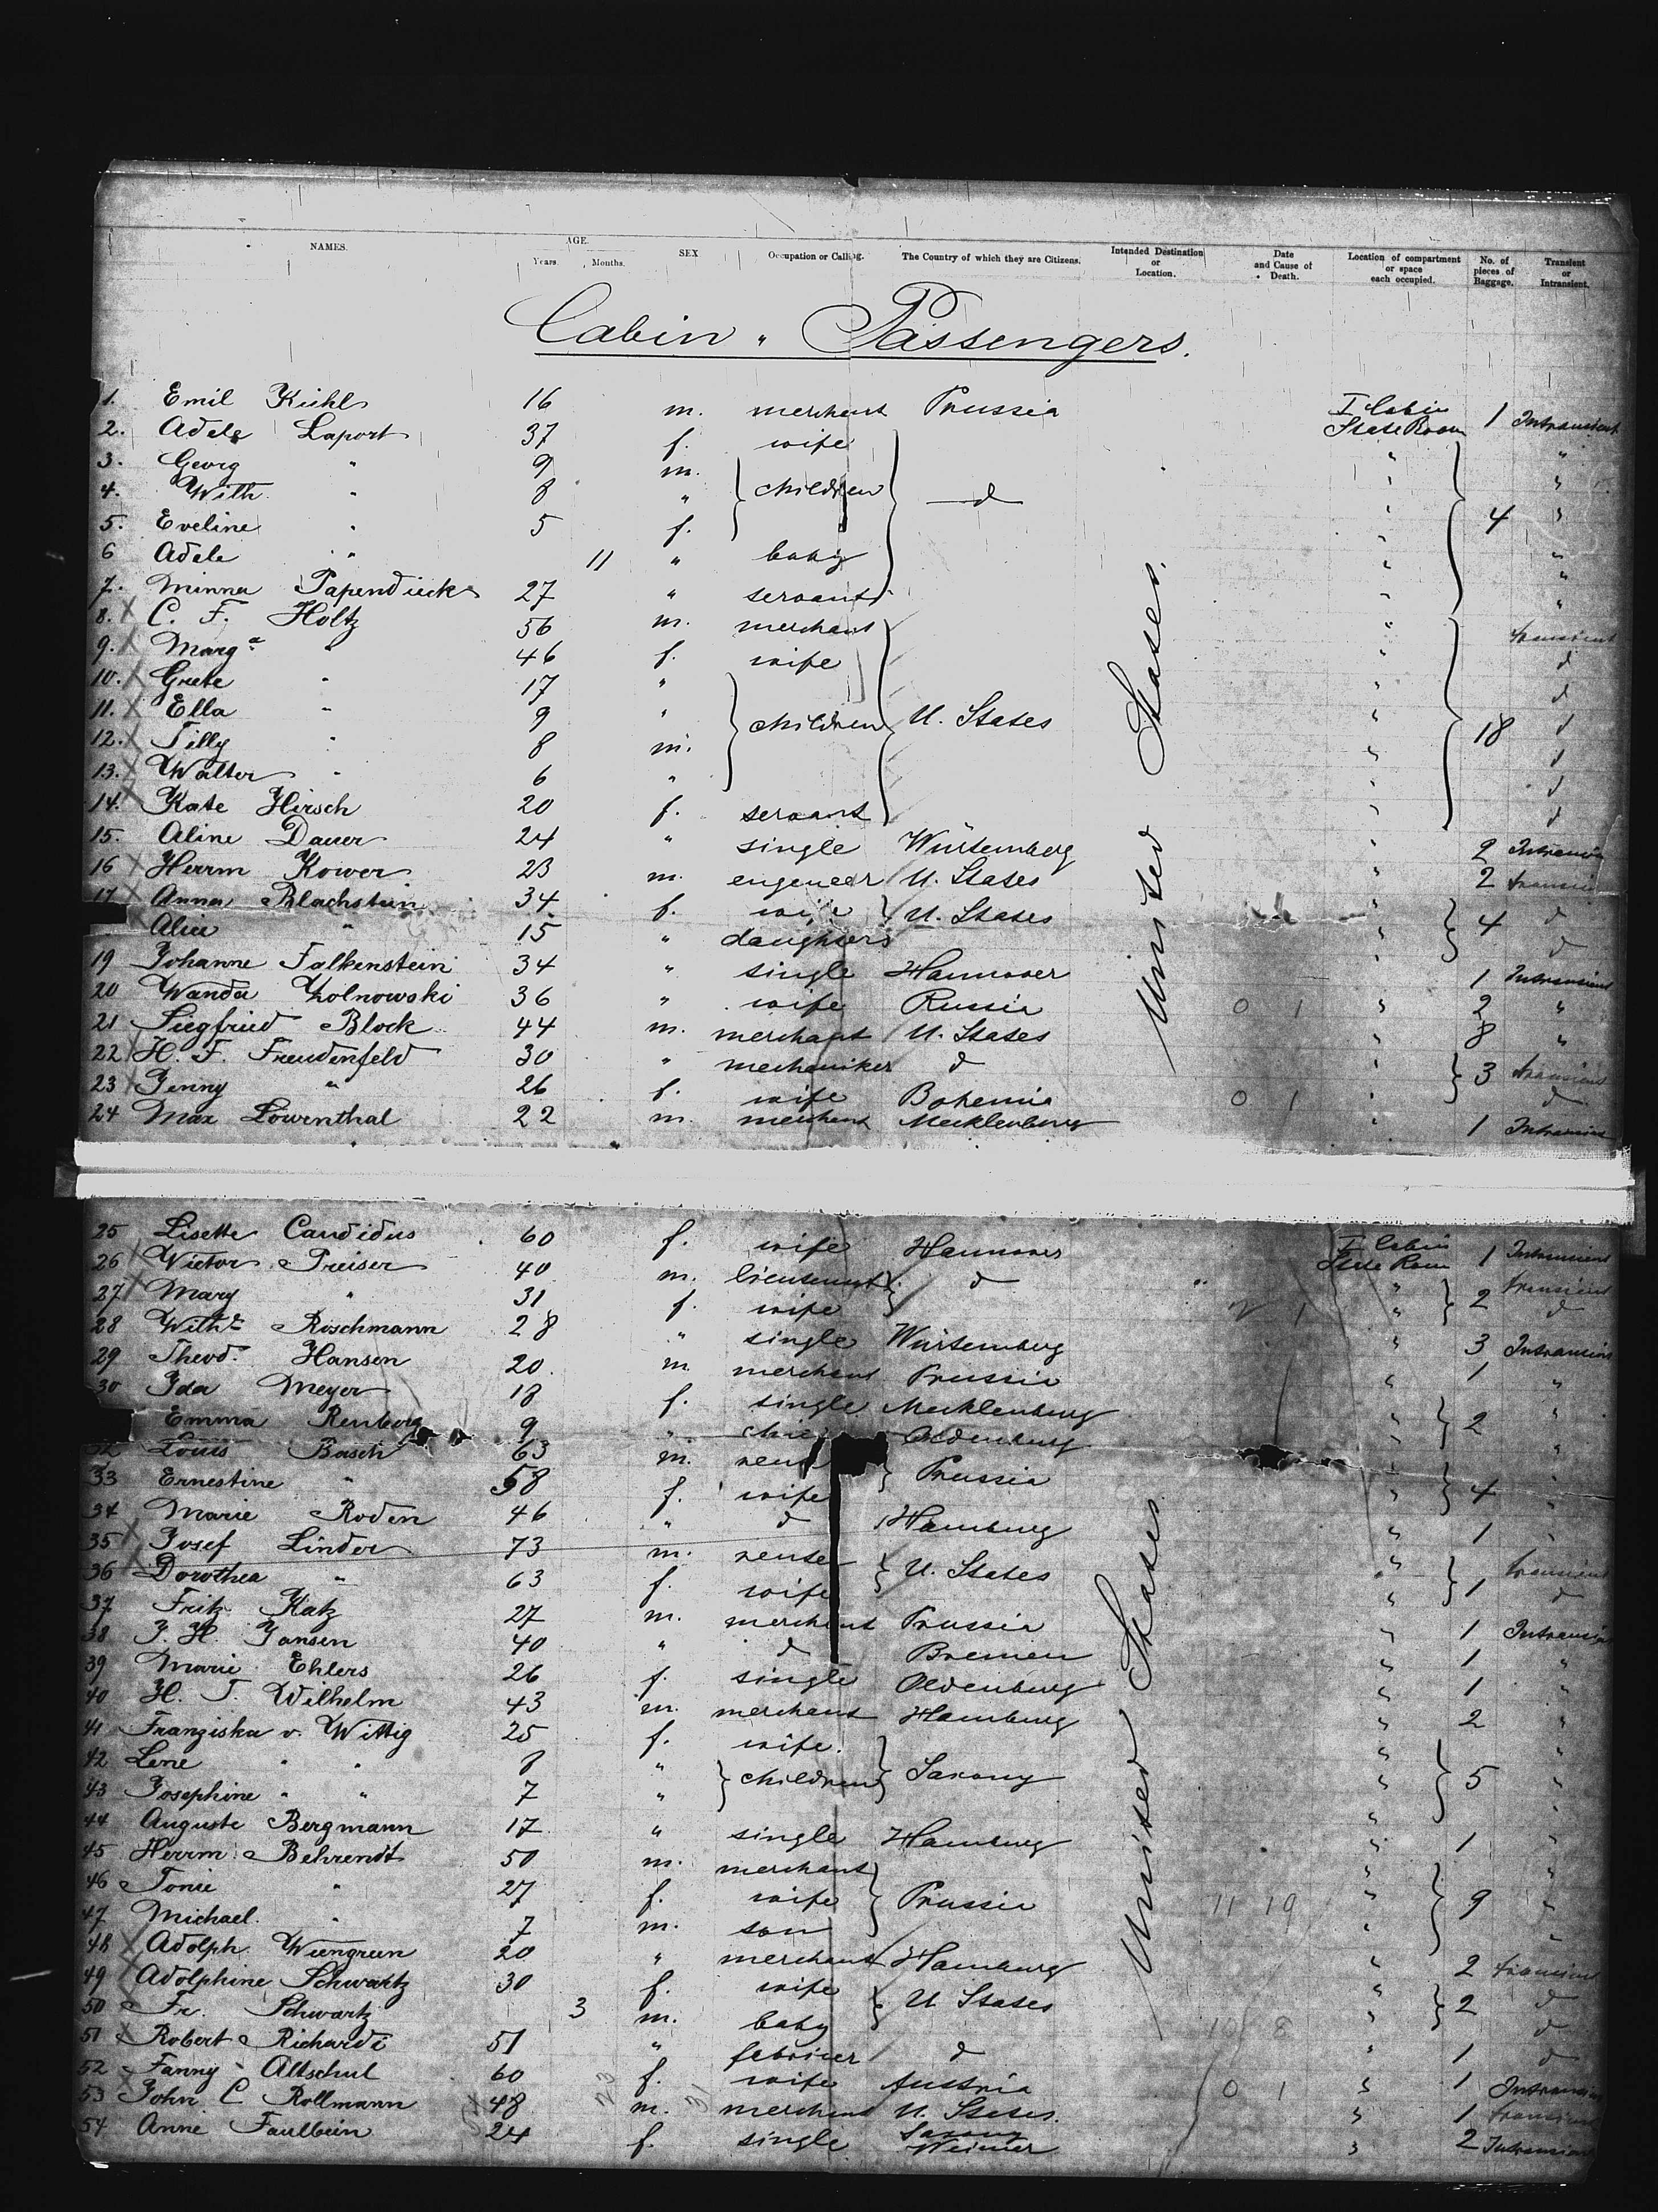 NAMES. AGE. Years. Months. SEX Occupation or Calling. The Country of which they are Citizens. Intended Destination or Location. Date and Cause of Death. Location of compartment or space each occupied. No. of pieces of Baggage. Transient or Intransient.
Cabin " Passengers.
1. Emil 16 m. merchant Prussia I Cabin State Room 1 Intransient
2. Adele Laport 37 f. wife "
3. Georg " 9 m. children d " "
4. Wilh. " 8 " " "
5. Eveline " 5 f. " 4 "
6 Adele " 11 " baby " "
7. Minna Papendieck 27 " servant " "
8. C. F. Holtz 56 m. merchant " transient
9. Marg.a " 46 f. wife " d
10. Grete " 17 " children U. States " d
11. Ella " 9 " " 18 d
12. Tilly " 8 m. " d
13. Walter " 6 " " d
14. Kate Hirsch 20 f. servant " d
15. Aline Dauer 24 " single Würtemberg " 2
16 Herrm Kower 23 m. engeneer U. States " 2
17 Anna Blachstein 34 f. wife U. States " 4 d
Alice " 15 " daughters " d
19 Johanne Falkenstein 34 " single Hannover " 1 Intransient
20 Wanda Zolnowski 36 " wife Russia 0 1 " 2 "
21 Siegfried Block 44 m. merchant U. States " 8 "
22 H. F. Freudenfeld 30 " mechaniker d " 3 transient
23 Jenny " 26 f. wife Bohemia 0 1 " d
24 Max Löwenthal 22 m. merchant Mecklenburg " 1
United States.
25 Lisette Candidus 60 f. wife Hannover I Cabin State Room 1 Intransient
26 Victor Preiser 40 m. lieutenant d " " transient
27 Mary " 31 f. wife 1 " 2 d
28 Wilh. Roschmann 28 " single Würtemberg " 3
29 Theod. Hansen 20 m. merchant Prussia " 1 "
30 Ida Meyer 18 f. single Mecklenburg " 2 "
Emma Renberg 9 " Oldenburg " "
32 Louis Basch 63 m. Prussia " 4 "
33 Ernestine " 58 f. wife " "
34 Marie Roden 46 " d Hamburg " 1 "
35 Josef Linder 73 m. U. States " 1 transient
36 Dorothea " 63 f. wife " d
37 Fritz Katz 27 m. merchant Prussia " 1
38 J. H. Jansen 40 " d Bremen " 1 "
39 Marie Ehlers 26 f. single Oldenburg " 1 "
40 H. T. Wilhelm 43 m. merchant Hamburg " 2 "
41 Franziska v. Wittig 25 f. wife. Saxony " 5 "
42 Lene " " 8 " children " "
43 Josephine " " 7 " " "
44 Auguste Bergmann 17 " single Hamburg " 1 "
45 Herrm. Behrendt 50 m. merchant Prussia " 9 "
46 Tonie " 27 f. wife 11 19 " "
47 Michael " 7 m. son " "
48 Adolph 20 " merchant Hamburg " 2
49 Adolphine Schwartz 30 f. wife U States " 2 d
50 Fr. Schwartz 3 m. baby 10 8 " d
51 Robert Richardi 51 " d " 1 d
52 Fanny Altschul 60 f. wife Austria 0 1 " 1
53 John C Rollmann 48 m. merchant U. States. " 1
54 Anne Faulbein 24 f. single Saxony Weimer " 2
United States